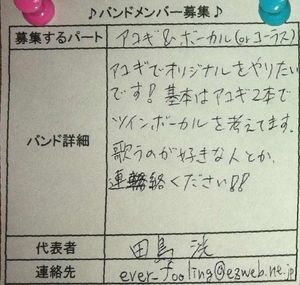 ♪バンドメンバー募集♪
募集するパート アコギ&ボーカル(orコーラス)
バンド詳細
アコギでオリジナルをやりたい
です!基本はアコギ2本で
ツインボーカルを考えてます。
歌うのが好きな人とか、
連絡ください!!
代表者 田島 洸
連絡先 ever_fooling@ezweb.ne.jp